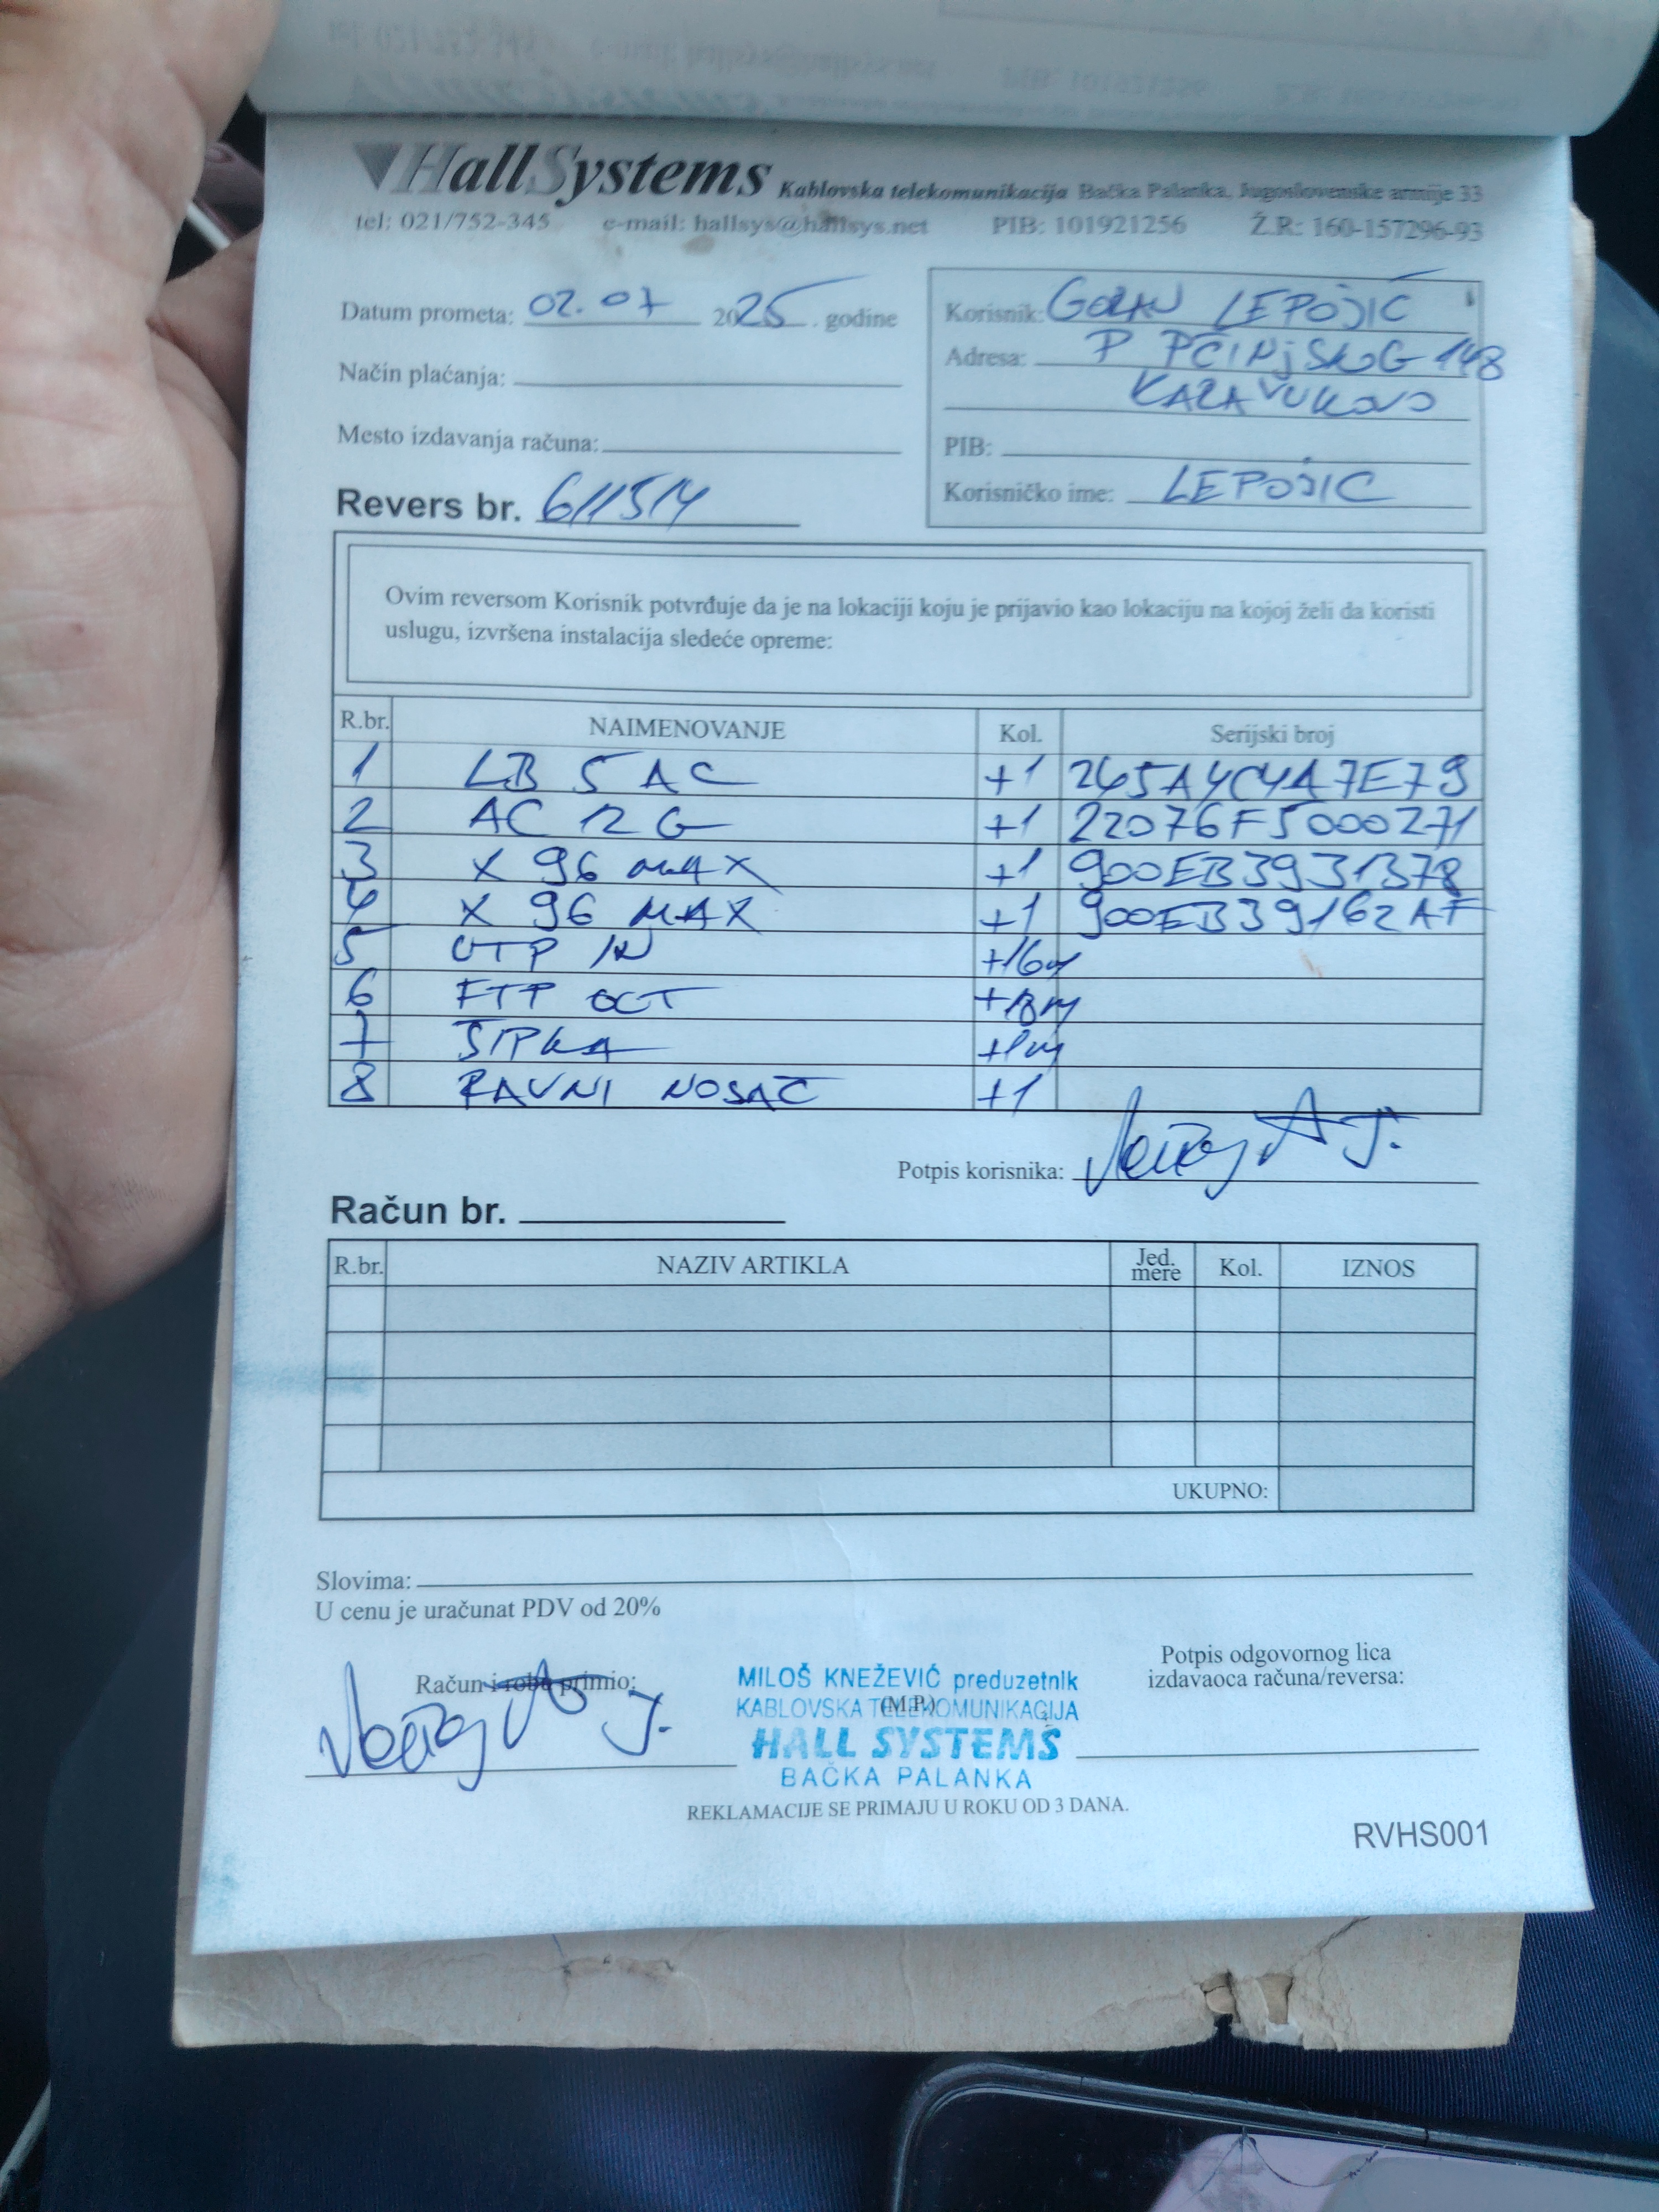 HallSystems Kablovska telekomunikacija Bačka Palanka, Jugoslovenske armije 33
tel: 021/752-345 e-mail: hallsys@hallsys.net PIB: 101921256 Ž.R: 160-157296-93
Datum prometa: 02.07 2025. godine
Način plaćanja:
Mesto izdavanja računa:
Revers br. 611514
Korisnik: GORAN LEPOJIĆ
Adresa: P PČINjSKOG 148
KARAVUKOVO
PIB:
Korisničko ime: LEPOJIC
Ovim reversom Korisnik potvrđuje da je na lokaciji koju je prijavio kao lokaciju na kojoj želi da koristi
uslugu, izvršena instalacija sledeće opreme:
R.br. NAIMENOVANJE Kol. Serijski broj
1 LB 5 AC +1 245A4C4A7E79
2 AC 12 G +1 22076F5000271
3 X 96 MAX +1 900EB3931378
4 X 96 MAX +1 900EB39162AF
5 UTP IN +16m
6 FTP OUT +18m
7 ŠIPKA +1m
8 RAVNI NOSAČ +1
Potpis korisnika:
Račun br.
R.br. NAZIV ARTIKLA Jed. mere Kol. IZNOS
UKUPNO:
Slovima:
U cenu je uračunat PDV od 20%
Račun i robu primio:
MILOŠ KNEŽEVIĆ preduzetnik
KABLOVSKA TELEKOMUNIKACIJA
(M.P.)
HALL SYSTEMS
BAČKA PALANKA
Potpis odgovornog lica
izdavaoca računa/reversa:
REKLAMACIJE SE PRIMAJU U ROKU OD 3 DANA.
RVHS001